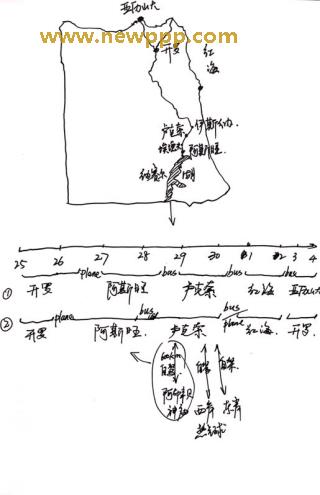 亚历山大
www.newppp.com
开罗
红海
卢克索
伊斯纳
埃德夫
阿斯旺
纳塞尔湖
25 26 27 28 29 30 31 2 3 4
plane bus bus bus
① 开罗 阿斯旺 卢克索 红海 亚历山大
plane bus bus plane
② 开罗 阿斯旺. 卢克索 红海. 开罗.
自驾 自驾 自驾
阿布辛贝神庙 西岸 东岸
热气球